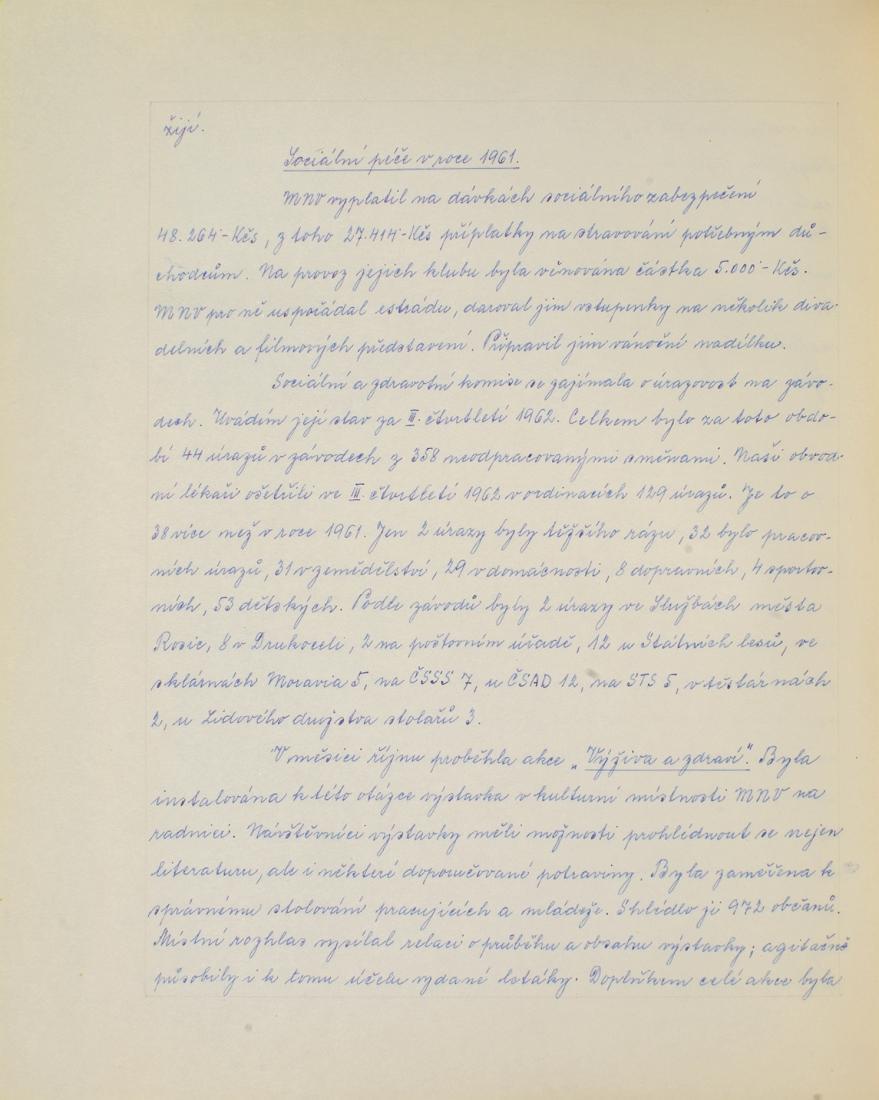 žijí.
Sociální péče v roce 1961.
MNV vyplatil na dávkách sociálního zabezpečení
48.264·-Kčs, z toho 27.414·-Kčs příplatky na stravování potřebným dů-
chodcům. Na provoz jejich klubu byla věnována částka 5.000·-Kčs.
MNV pro ně uspořádal estrádu, daroval jim vstupenky na několik diva-
delních a filmových představení. Připravil jim vánoční nadílku.
Sociální a zdravotní komise se zajímala o úrazovost na závo-
dech. Uvádím její stav za III. čtvrtletí 1962. Celkem bylo za toto obdo-
bí 44 úrazů v závodech z 358 neodpracovanými směnami. Naši obvod-
ní lékaři ošetřili ve III. čtvrtletí 1962 v ordinacích 129 úrazů. Je to o
38 více než v roce 1961. Jen 2 úrazy byly těžšího rázu, 32 bylo pracov-
ních úrazů, 31 v zemědělství, 29 v domácnosti, 8 dopravních, 4 sportov-
ních, 53 dětských. Podle závodů byly 2 úrazy ve Službách města
Rosic, 8 v Drukoceli, 2 na poštovním úřadě, 12 u Státních lesů, ve
sklárnách Moravia 5, na ČSSS 7, u ČSAD 12, na STS 5, v těstárnách
2, u Lidového družstva stolařů 3.
V měsíci říjnu proběhla akce „Výživa a zdraví". Byla
instalována k této otázce výstavka v kulturní místnosti MNV na
radnici. Návštěvníci výstavky měli možnosti prohlédnout se nejen
literaturu, ale i některé doporučované potraviny. Byla zaměřena k
správnému stolování pracujících a mládeže. Shlédlo ji 972 občanů.
Místní rozhlas vysílal relaci o průběhu a obsahu výstavky; agitačně
působily i k tomu účelu vydané letáky. Doplňkem celé akce byla